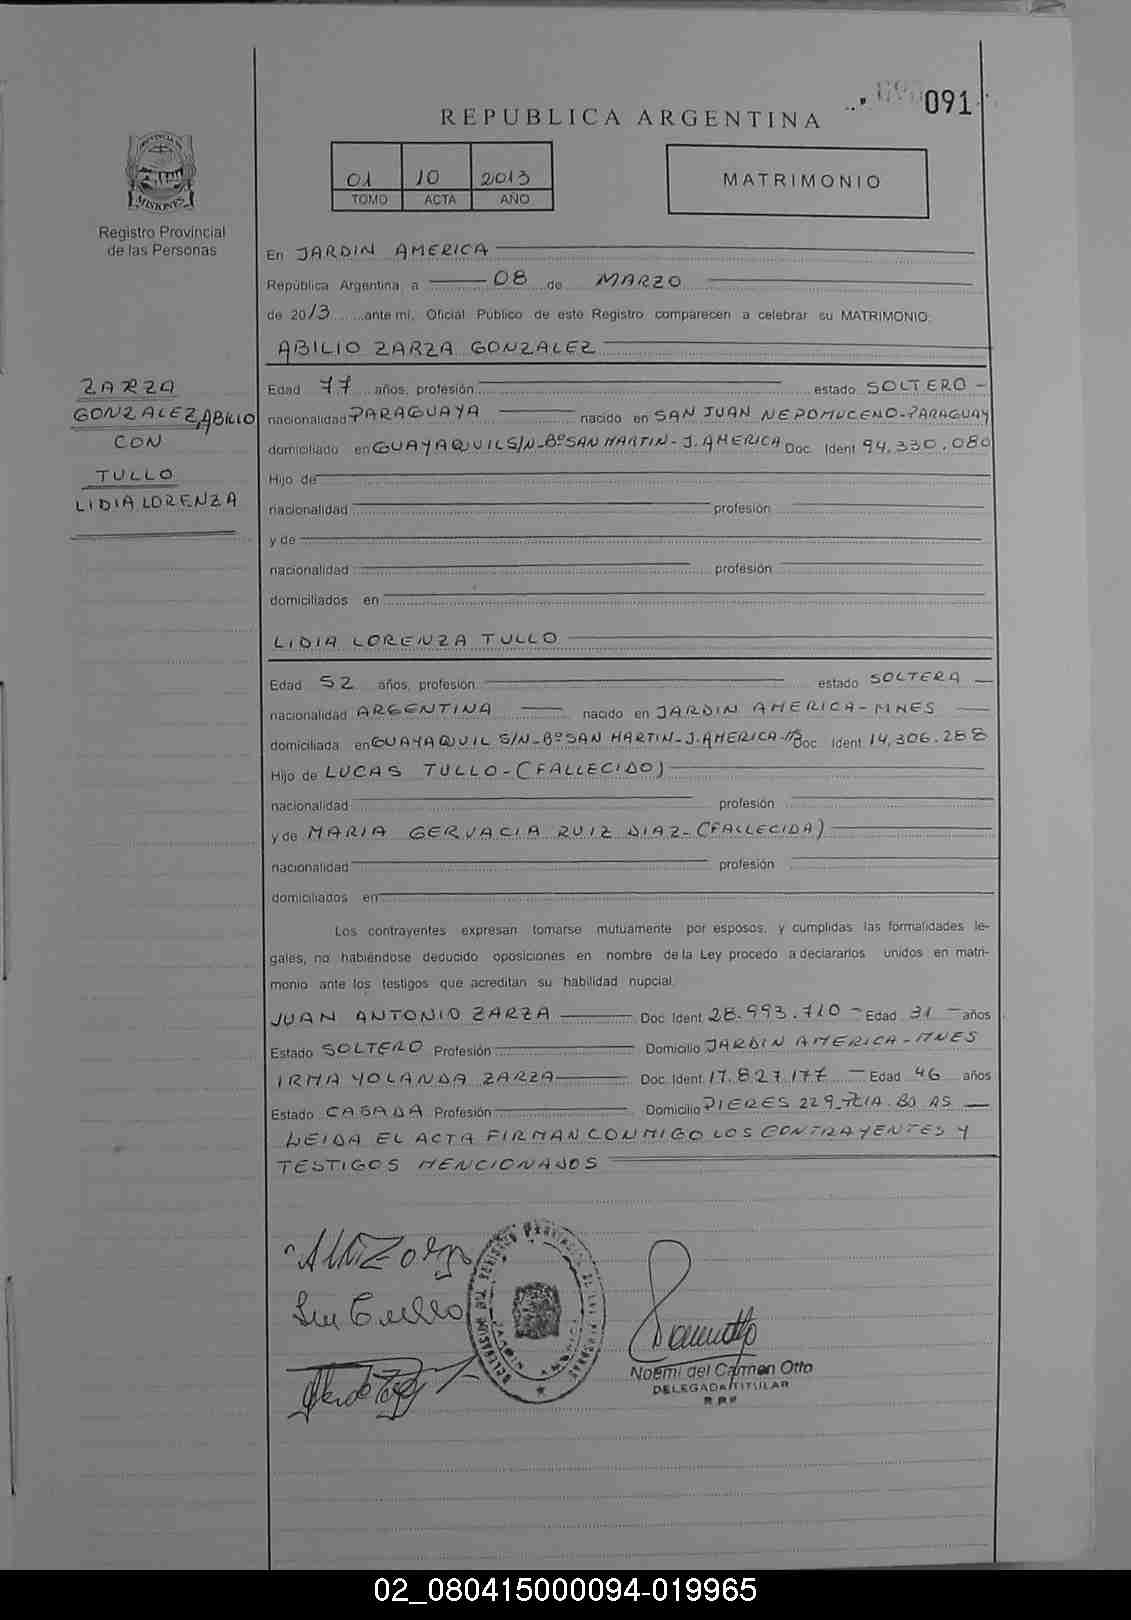 091
REPUBLICA ARGENTINA
01 10 2013
TOMO ACTA AÑO
MATRIMONIO
PROVINCIA DE
MISIONES
Registro Provincial
de las Personas
En JARDIN AMERICA
República Argentina a 08 de MARZO
de 2013 ante mi, Oficial Público de este Registro comparecen a celebrar su MATRIMONIO:
ABILIO ZARZA GONZALEZ
ZARZA
GONZALEZ, ABILIO
CON
TULLO
LIDIA LORENZA
Edad 77 años, profesión estado SOLTERO -
nacionalidad PARAGUAYA nacido en SAN JUAN NEPOMUCENO-PARAGUAY
domiciliado en GUAYAQUIL S/N-Bº SAN MARTIN-J. AMERICA Doc. Ident. 94.330.080
Hijo de
nacionalidad profesión
y de
nacionalidad profesión
domiciliados en
LIDIA LORENZA TULLO
Edad 52 años, profesión estado SOLTERA
nacionalidad ARGENTINA nacido en JARDIN AMERICA-MNES
domiciliada en GUAYAQUIL S/N-Bº SAN MARTIN-J. AMERICA- Doc. Ident. 14.306.288
Hijo de LUCAS TULLO-(FALLECIDO)
nacionalidad profesión
y de MARIA GERVACIA RUIZ DIAZ-(FALLECIDA)
nacionalidad profesión
domiciliados en
Los contrayentes expresan tomarse mutuamente por esposos, y cumplidas las formalidades le-
gales, no habiéndose deducido oposiciones en nombre de la Ley procedo a declararlos unidos en matri-
monio ante los testigos que acreditan su habilidad nupcial.
JUAN ANTONIO ZARZA Doc. Ident. 28.993.710 - Edad 31 - años
Estado SOLTERO Profesión Domicilio JARDIN AMERICA-MNES
IRMA YOLANDA ZARZA Doc. Ident. 17.827.177 - Edad 46 años
Estado CASADA Profesión Domicilio PIERES 229 BS AS
LEIDA EL ACTA FIRMAN CONMIGO LOS CONTRAYENTES Y
TESTIGOS MENCIONADOS
Noemí del Carmen Otto
DELEGADA TITULAR
R P P
02_080415000094-019965